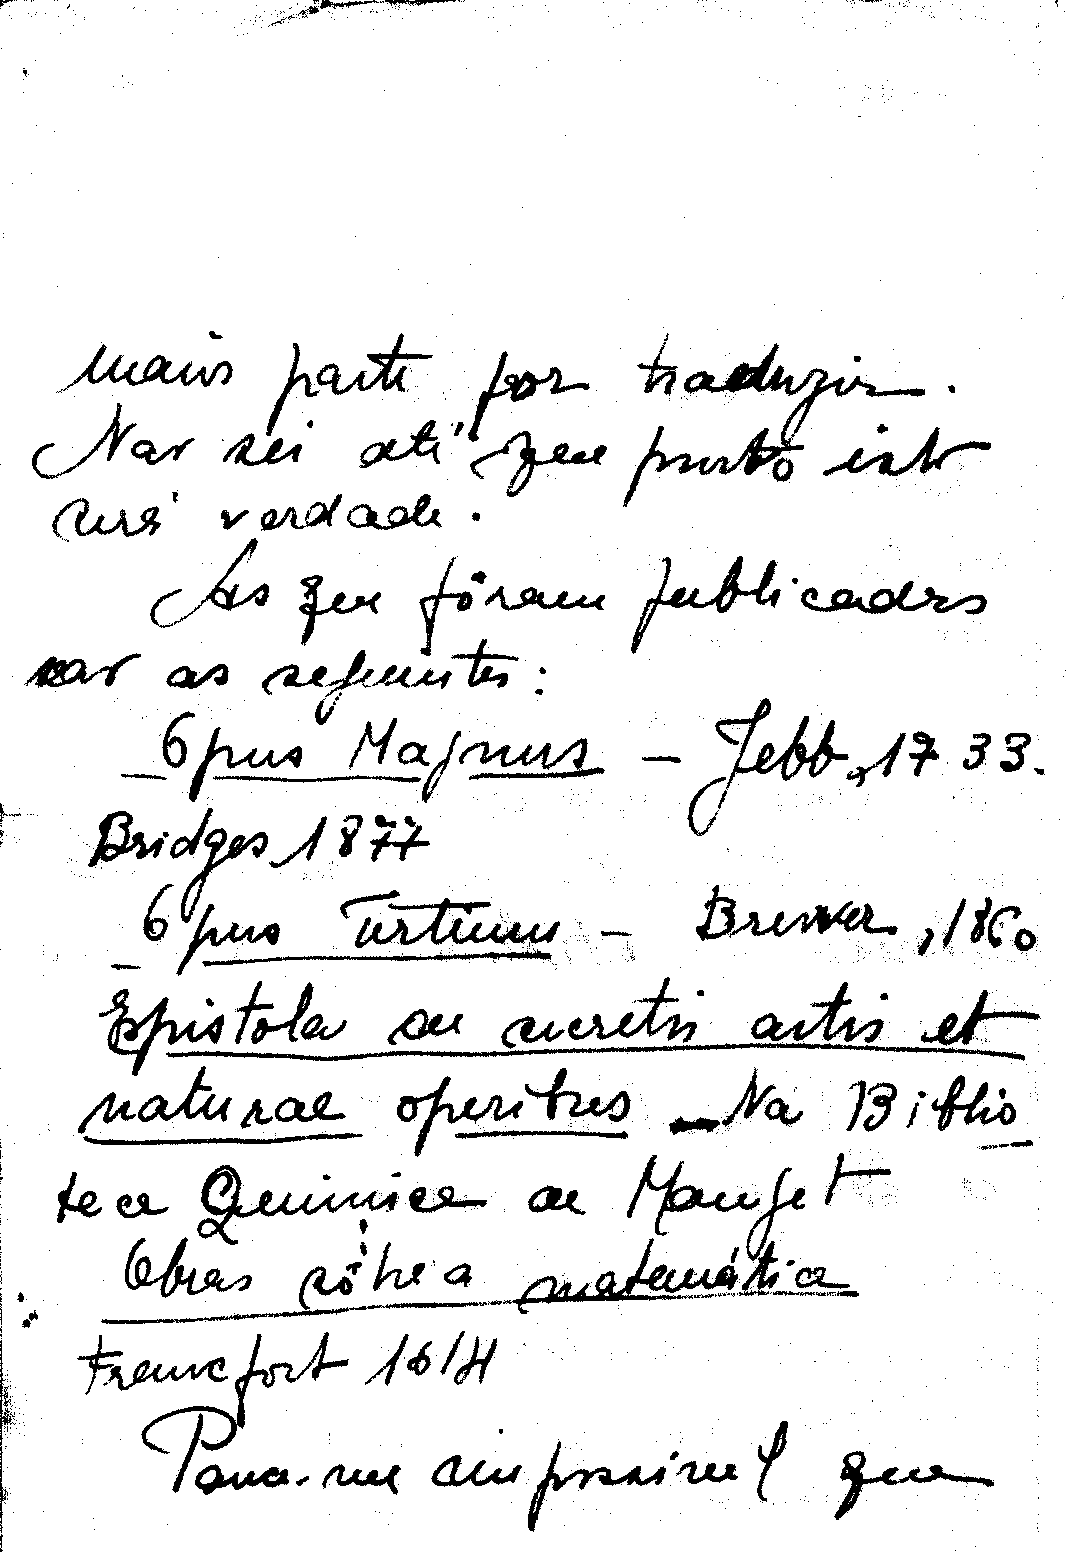 mais parte por traduzir.
Não sei até que ponto isto
será verdade.
As que fôram publicadas
são as seguintes:
Opus Magnus - Jebb, 1733.
Bridges, 1877
Opus Tertium - Brewer, 1860
Epistola de secretis artis et
naturae operibus - Na Biblio
teca Quimica de Manget
Obras sôbre a matemática
Francfort 1614
Parece-me impossivel que